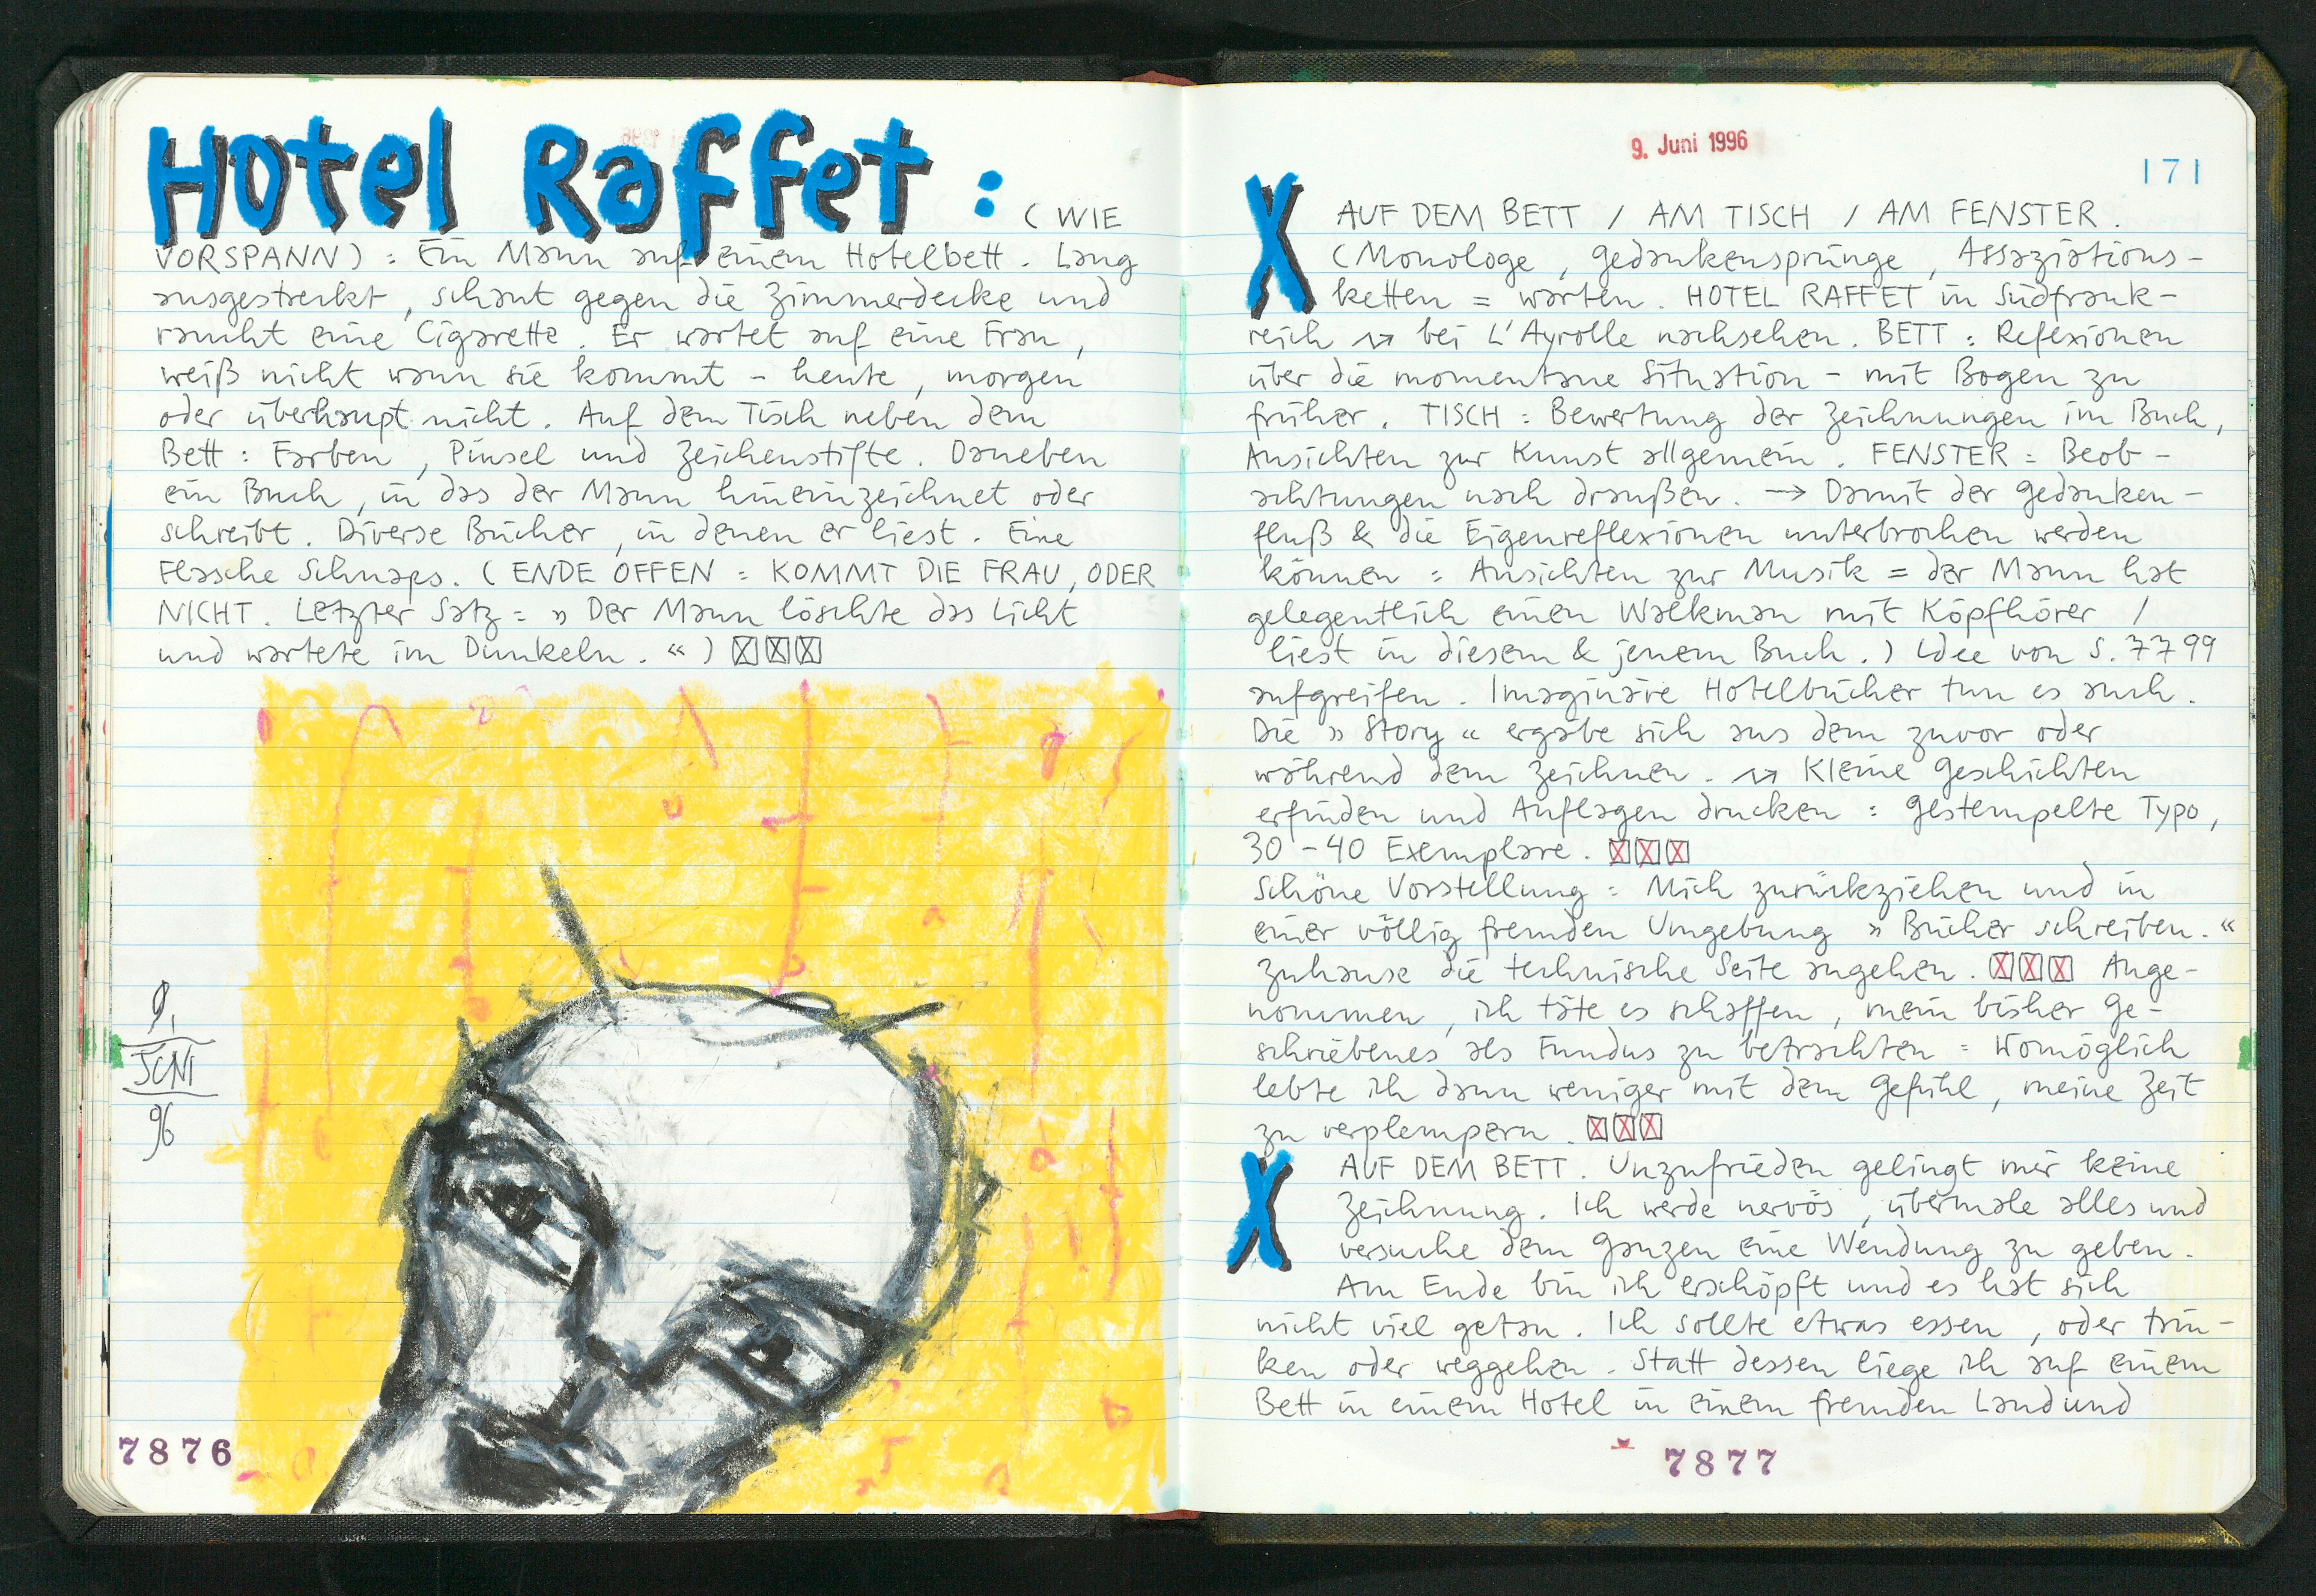 Hotel Raffet :
( WIE
VORSPANN ) : Ein Mann auf einem Hotelbett . Lang
ausgestreckt , schaut gegen die Zimmerdecke und
raucht eine Cigarette . Er wartet auf eine Frau ,
weiß nicht wann sie kommt – heute , morgen
oder überhaupt nicht . Auf dem Tisch neben dem
Bett : Farben , Pinsel und Zeichenstifte . Daneben
ein Buch , in das der Mann hineinzeichnet oder
schreibt . Diverse Bücher , in denen er liest . Eine
Flasche Schnaps . ( ENDE OFFEN : KOMMT DIE FRAU , ODER
NICHT . Letzter Satz = » Der Mann löschte das Licht
und wartete im Dunkeln . « ) ☒☒☒
9.
JUNI
96
7876
9. Juni 1996
171
X AUF DEM BETT / AM TISCH / AM FENSTER .
( Monologe , Gedankensprünge , Assoziations –
ketten = warten . HOTEL RAFFET in Südfrank –
reich → bei L'Ayrolle nachsehen . BETT : Reflexionen
über die momentane Situation – mit Bogen zu
früher . TISCH : Bewertung der Zeichnungen im Buch ,
Ansichten zur Kunst allgemein . FENSTER = Beob –
achtungen nach draußen . → Damit der Gedanken –
fluß & die Eigenreflexionen unterbrochen werden
können : Ansichten zur Musik = der Mann hat
gelegentlich einen Walkman mit Kopfhörer /
liest in diesem & jenem Buch . ) Idee von S. 7799
aufgreifen . Imaginäre Hotelbücher tun es auch .
Die » Story « ergäbe sich aus dem zuvor oder
während dem Zeichnen . → Kleine Geschichten
erfinden und Auflagen drucken : gestempelte Typo ,
30 – 40 Exemplare . ☒☒☒
Schöne Vorstellung : Mich zurückziehen und in
einer völlig fremden Umgebung » Bücher schreiben . «
Zuhause die technische Seite angehen . ☒☒☒ Ange –
nommen , ich täte es schaffen , mein bisher Ge –
schriebenes als Fundus zu betrachten = Womöglich
lebte ich dann weniger mit dem Gefühl , meine Zeit
zu verplempern . ☒☒☒
X AUF DEM BETT . Unzufrieden gelingt mir keine
Zeichnung . Ich werde nervös , übermale alles und
versuche dem Ganzen eine Wendung zu geben .
Am Ende bin ich erschöpft und es hat sich
nicht viel getan . Ich sollte etwas essen , oder trin –
ken oder weggehen . Statt dessen liege ich auf einem
Bett in einem Hotel in einem fremden Land und
7877